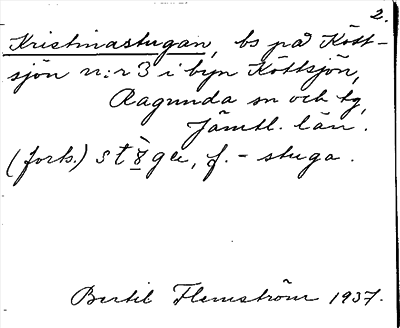 2.
Kristinastugan, bs på Kött-
sjön n:r 3 i byn Köttsjön,
Ragunda sn och tg,
Jämtl. län.
(forts.) f. - stuga.
Bertil Flemström 1937.